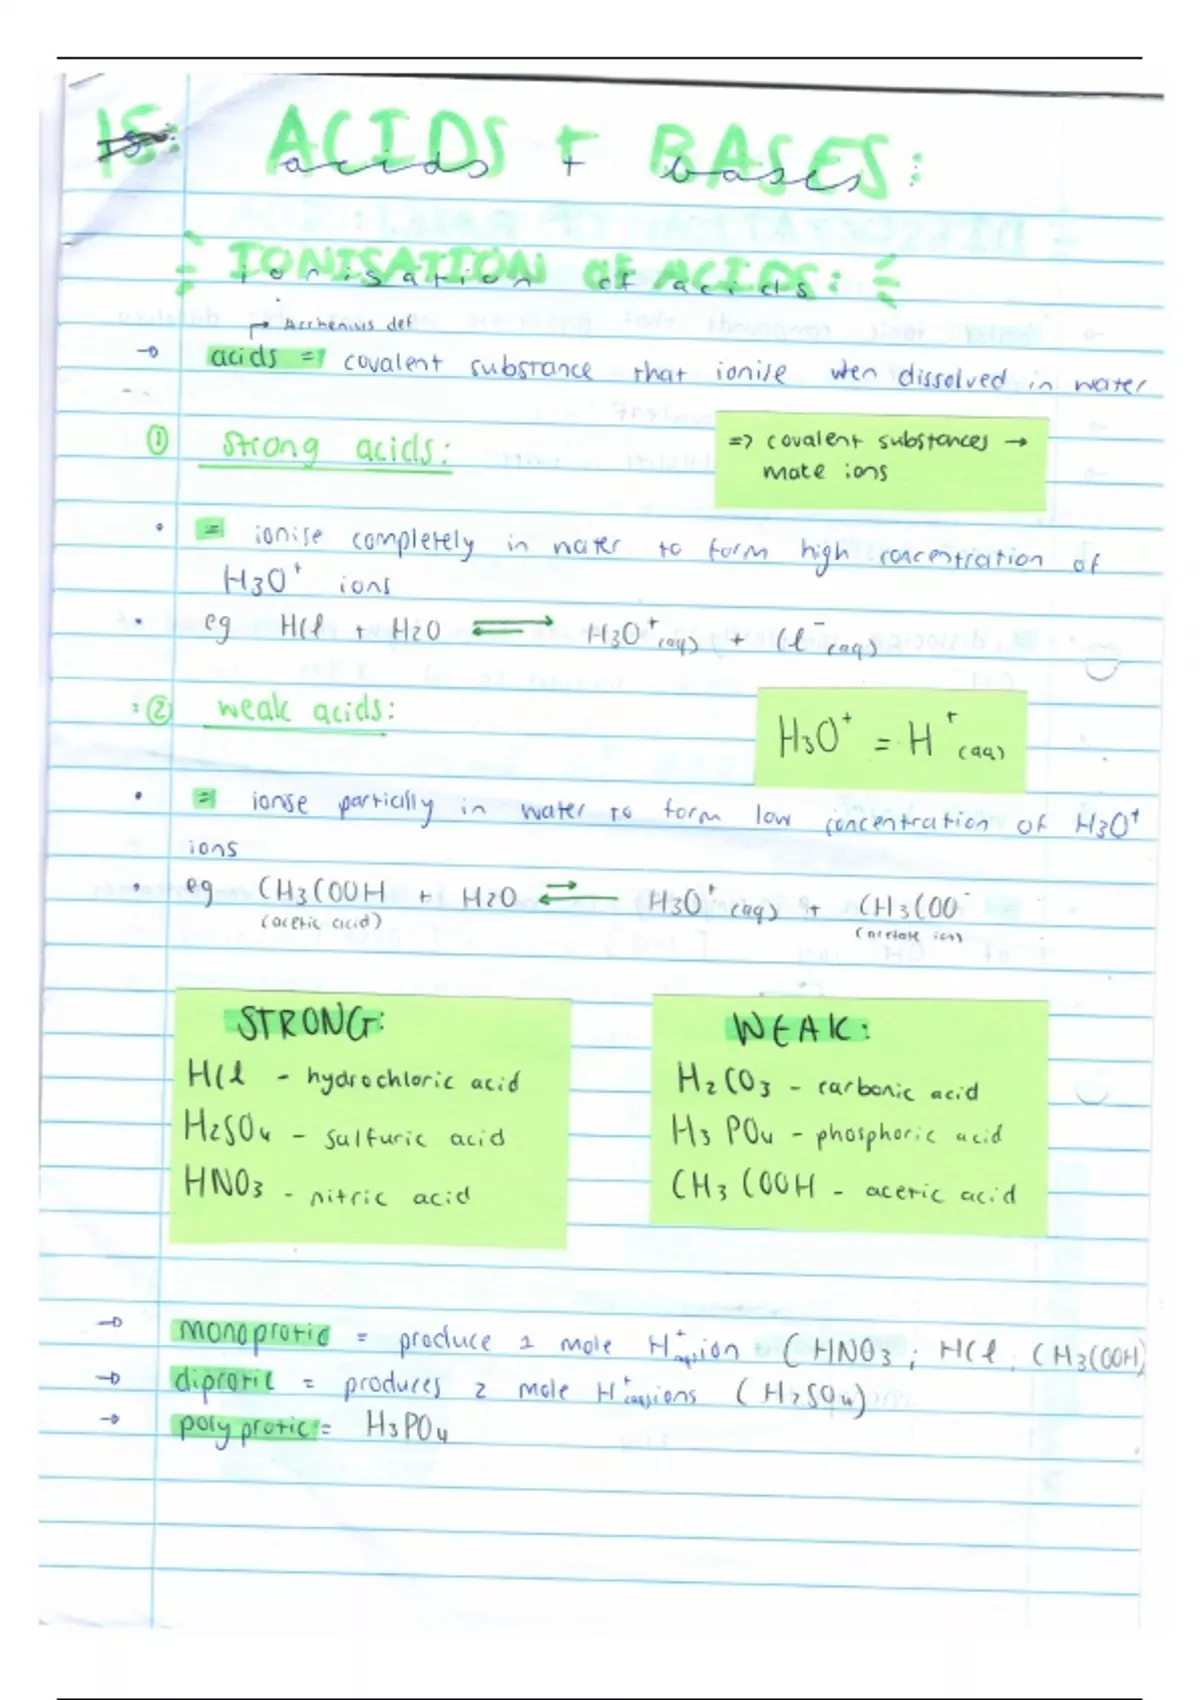 15: ACIDS + BASES:
acids + bases
IONISATION OF ACIDS:
ionisation of acids
↱ Arrhenius def
→ acids = covalent substance that ionise wen dissolved in water
① strong acids:
=> covalent substances →
make ions
• = ionise completely in water to form high concentration of
H3O⁺ ions
• eg HCl + H2O ⇌ H3O⁺(aq) + Cl⁻(aq)
② weak acids:
H3O⁺ = H⁺(aq)
• = ionse partially in water to form low concentration of H3O⁺
ions
• eg CH3COOH + H2O ⇌ H3O⁺(aq) + CH3COO⁻
(acetic acid) (acetate ion)
STRONG:
HCl - hydrochloric acid
H2SO4 - sulfuric acid
HNO3 - nitric acid
WEAK:
H2CO3 - carbonic acid
H3PO4 - phosphoric acid
CH3COOH - acetic acid
→ monoprotic = produce 1 mole H⁺(aq) ion (HNO3; HCl, CH3COOH)
→ diprotic = produces 2 mole H⁺(aq) ions (H2SO4)
→ polyprotic = H3PO4